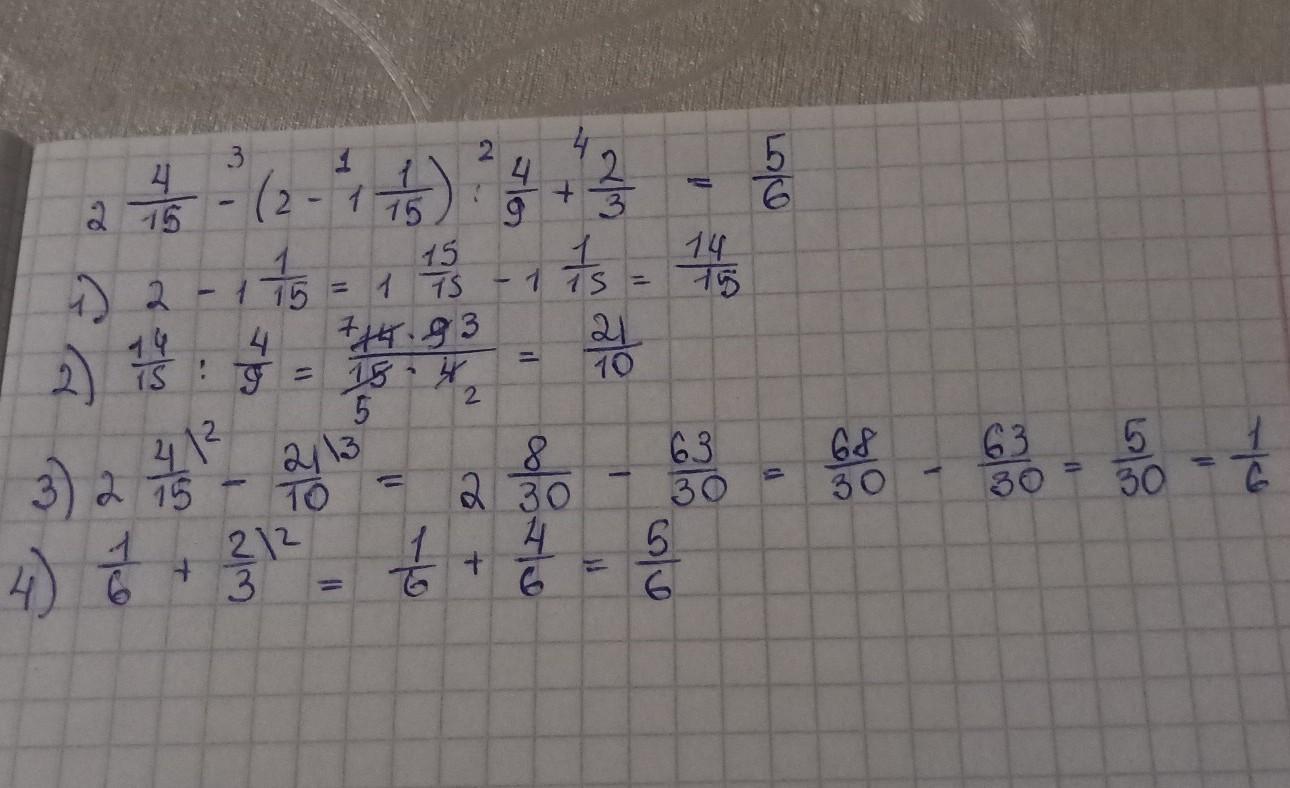 2 4/15 -³ (2 -¹ 1 1/15) :² 4/9 +⁴ 2/3 = 5/6
1) 2 - 1 1/15 = 1 15/15 - 1 1/15 = 14/15
2) 14/15 : 4/9 = 7 14 · 9 3 / 15 5 · 4 2 = 21/10
3) 2 4/15\2 - 21/10\3 = 2 8/30 - 63/30 = 68/30 - 63/30 = 5/30 = 1/6
4) 1/6 + 2/3\2 = 1/6 + 4/6 = 5/6